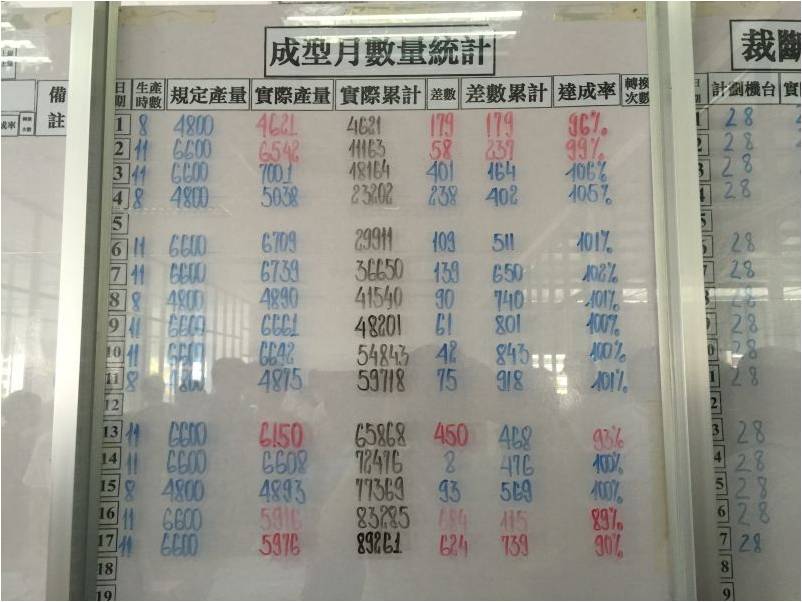 成型月數量統計
裁斷
備註
日期 生產時數 規定產量 實際產量 實際累計 差數 差數累計 達成率 轉換次數
計劃機台
1 8 4800 4621 4621 179 179 96% 28
2 11 6600 6542 11163 58 237 99% 28
3 11 6600 7001 18164 401 164 106% 28
4 8 4800 5038 23202 238 402 105% 28
5
6 11 6600 6709 29911 109 511 101% 28
7 11 6600 6739 36650 139 650 102% 28
8 8 4800 4890 41540 90 740 101% 28
9 11 6600 6661 48201 61 801 100% 28
10 11 6600 6642 54843 42 843 100% 28
11 8 4800 4875 59718 75 918 101% 28
12
13 11 6600 6150 65868 450 468 93% 28
14 11 6600 6608 72476 8 476 100% 28
15 8 4800 4893 77369 93 569 100% 28
16 11 6600 5916 83285 684 115 89% 28
17 11 6600 5976 89261 624 739 90% 28
18
19